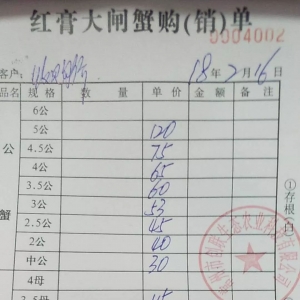 红膏大闸蟹购(销)单
0004002
客户: 18年2月16日
品名 规格 数量 单价 金额 备注
6公
5公 120
4.5公 75
公 4公 65
3.5公 60
3公 53
蟹 2.5公 45
2公 40
中公 30
4母
3.5母 45
①存根(白)
生态农业科